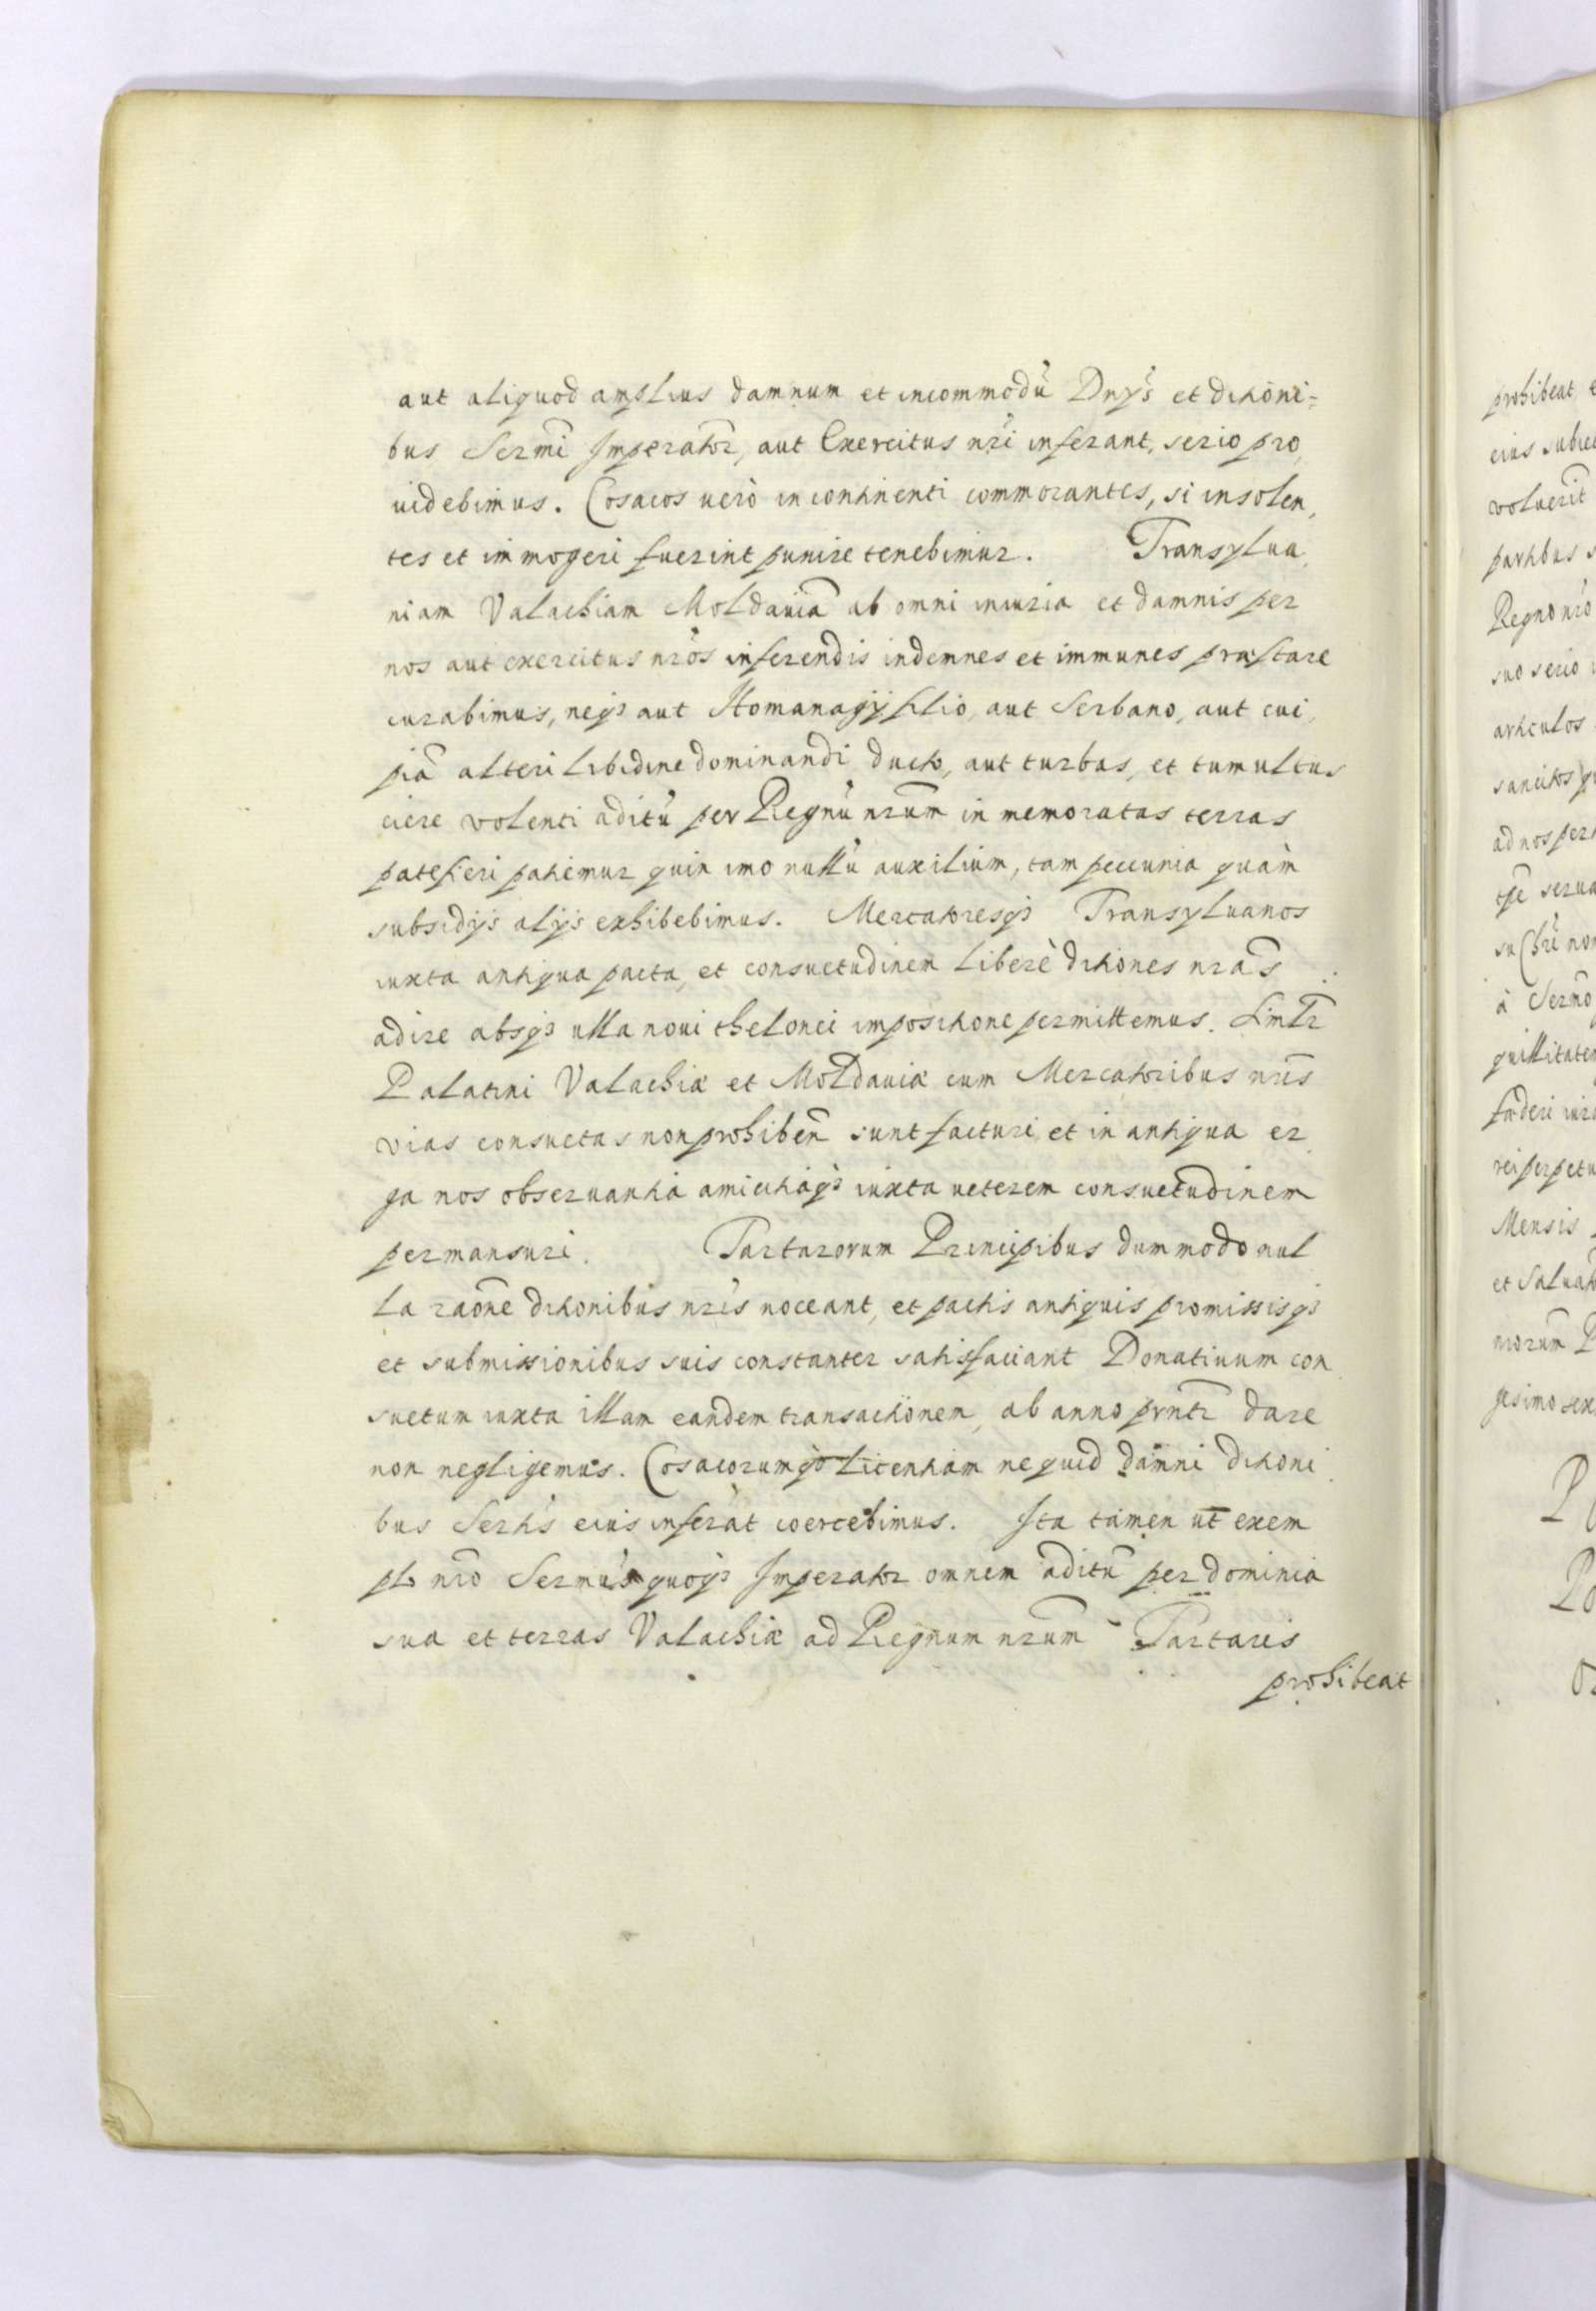 aut aliquod amplius damnum et incommodũ Dnys̃ et ditõni=
bus Sermĩ Imperatõr, aut Exercitus nrĩ inferant, serio pro,
uidebimus. Cosacos uerò in continenti commorantes, si insolen,
tes et immogeri fuerint punire tenebimur. Transylua,
niam Valachiam Moldauiã ab omni iniuria et damnis per
nos aut exercitus nrõs inferendis indemnes et immunes præstare
curabimus, neqз aut Homanagÿ filio, aut Serbano, aut cui,
piã alteri libidine dominandi ducto, aut turbas, et tumultus
ciere volenti aditũ per Regnũ nrũm in memoratas terras
patefieri patiemur quin imo nullũ auxilium, tam peccunia quàm
subsidÿs alÿs exhibebimus. Mercatoresqз Transyluanos
iuxta antiqua pacta, et consuetudinem liberè ditiones nrãs
adire absqз ulla noui thelonei impositione permittemus. Simlr̃
Palatini Valachiæ et Moldauiæ cum Mercatoribus nrĩs
vias consuetas non prohibẽn sunt facturi, et in antiqua er,
ga nos obseruantia amicitiaqз iuxta ueterem consuetudinem
permansuri. Tartarorum Principibus dummodo nul
la raõne ditionibus nrĩs noceant, et pactis antiquis promissisqз
et submissionibus suis constanter satisfaciant Donatiuum con
suetum iuxta illam eandem transactionem, ab anno prñtr dare
non negligemus. Cosacorumqз licentiam ne quid damni ditioni
bus Sertĩs eius inferat coercebimus. Ita tamen ut exem
plo nrõ Sermũs quoqз Imperator omnem aditũ per dominia
sua et terras Valachiæ ad Regnum nrũm Tartaris
prohibeat
prohibeat
eius
voluerit
partibus
Regno nrõ
suo serio
articulos
sancitos
ad nos
à Sermõ
Mensis